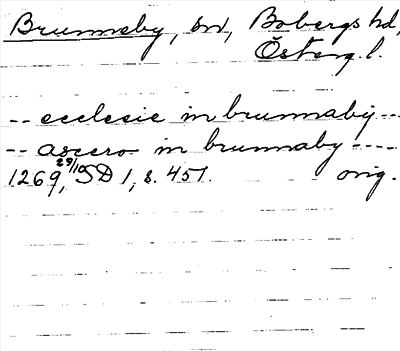 Brunneby, sn, Bobergs hd,
Österg. l.
-- ecclecie in brunnaby --
-- ascero in brunnaby ----
1269, 29/10 SD 1, s. 451. orig.